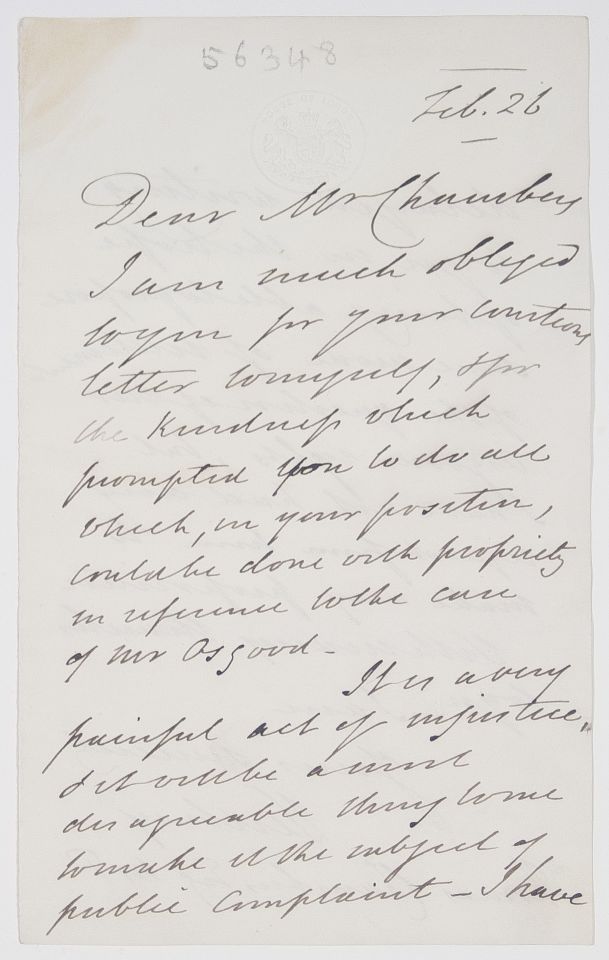 56348
Feb. 26
Dear Mr Chambers
I am much obliged
to you for your courteous
letter to myself, & for
the kindness which
prompted you to do all
which, in your position,
could be done with propriety
in reference to the case
of Mr Osgood -
It is a very
painful act of injustice,
& it will be a most
disagreeable thing to me
to make it the subject of
public complaint - I have